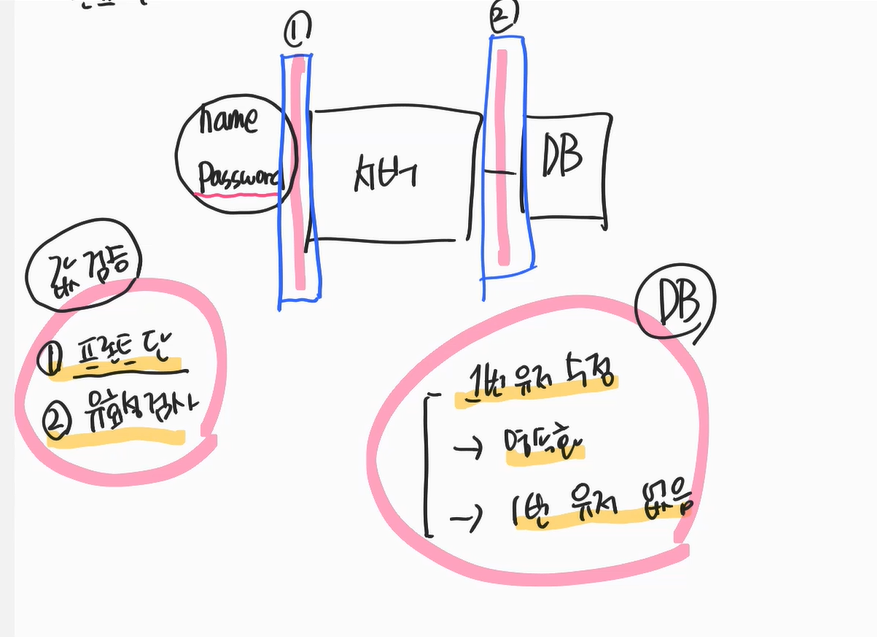 ①
②
name
Password
서버
DB
값 검증
① 프론트 단
② 유효성 검사
DB
1번 유저 수정
→ 영속화
→ 1번 유저 없음